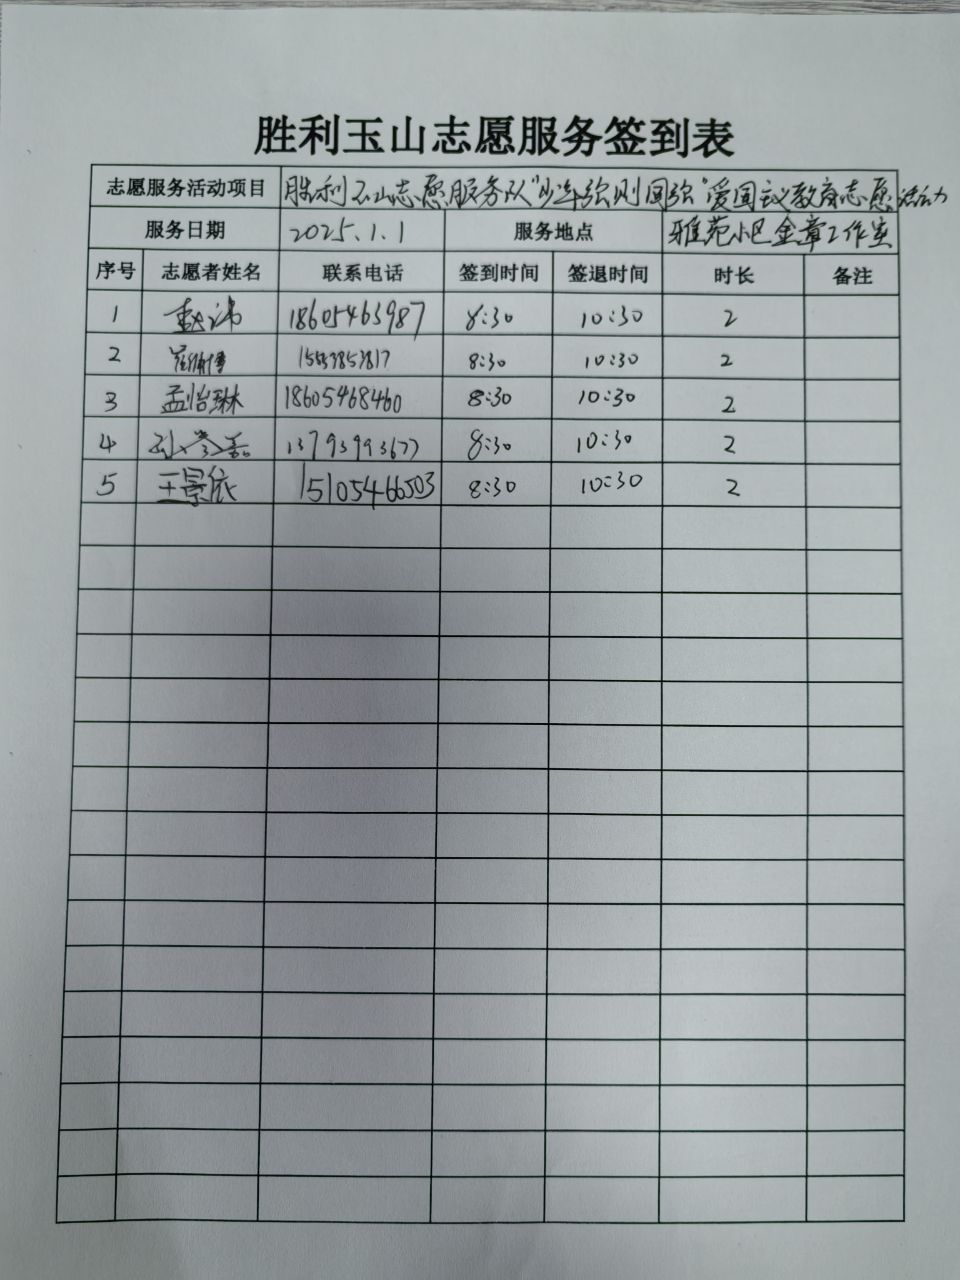 胜利玉山志愿服务签到表
志愿服务活动项目 胜利玉山志愿服务队"少年强则国强"爱国主义教育志愿活动
服务日期 2025.1.1 服务地点 雅苑小区金章工作室
序号 志愿者姓名 联系电话 签到时间 签退时间 时长 备注
1 18605463987 8:30 10:30 2
2 8:30 10:30 2
3 孟怡琳 18605468460 8:30 10:30 2
4 13793993677 8:30 10:30 2
5 王景依 15105466503 8:30 10:30 2